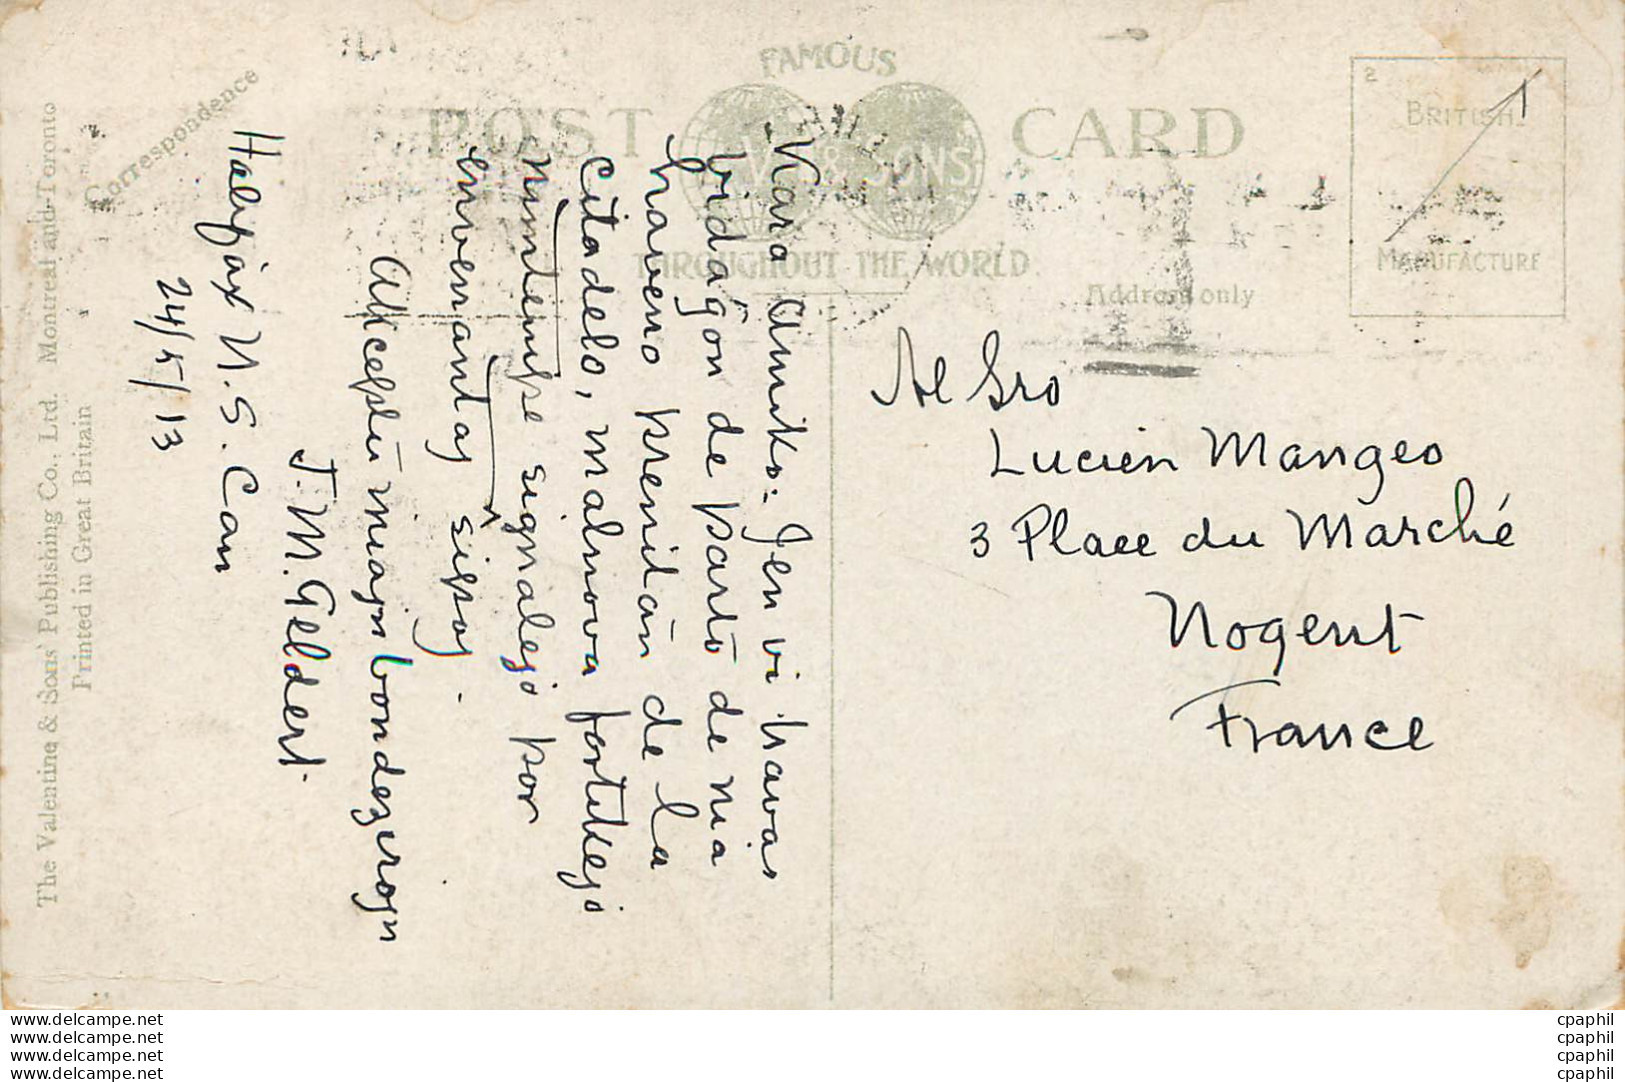 FAMOUS
POST CARD
V. & SONS
THROUGHOUT THE WORLD
Correspondence
Address only
2
BRITISH
MANUFACTURE
The Valentine & Sons' Publishing Co., Ltd. Montreal and Toronto
Printed in Great Britain
Kara Amiko: Jen vi havas
vidaĵon de parto de nia
haveno prenitan de la
citadelo, malnova fortikejo
nuntempe signalejo por
envenantaj ŝipoj.
Akceptu miajn bondezirojn
J. M. Geldert
Halifax N.S. Can
24/5/13
Al Sro
Lucien Mangeo
3 Place du Marché
Nogent
France
www.delcampe.net
www.delcampe.net
www.delcampe.net
www.delcampe.net
cpaphil
cpaphil
cpaphil
cpaphil